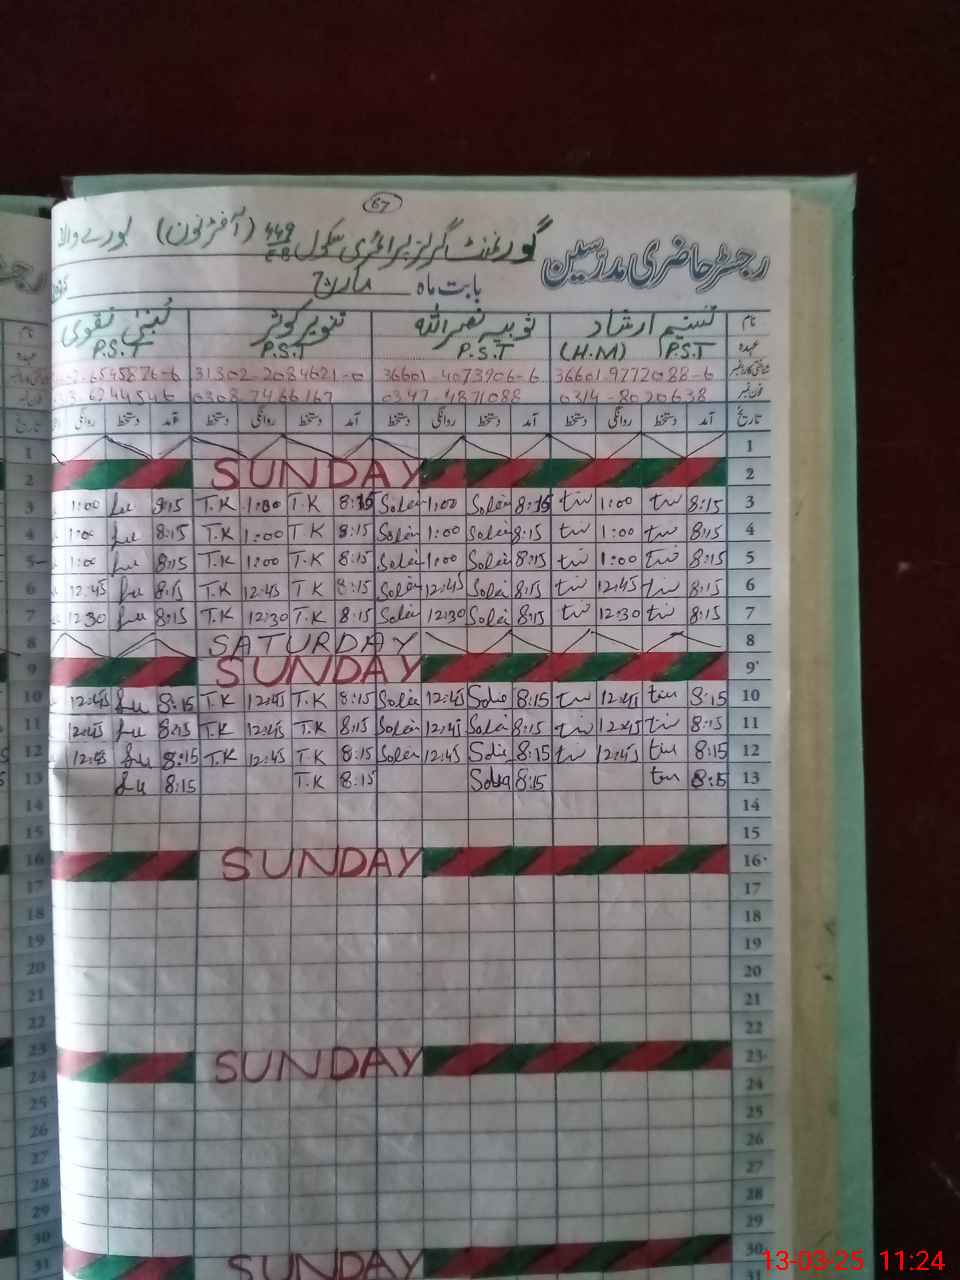 67
گورنمنٹ گرلز پرائمری سکول 449 EB (آفٹرنون) بورے والا
رجسٹر حاضری مدرسین
بابت ماہ مارچ
نام تسنیم ارشاد ثوبیہ نصراللہ تنویر کوثر لبنیٰ نقوی
عہدہ P.S.T (H.M) P.S.T P.S.T P.S.T
36601-9772088-6 36601-4073906-6 31302-2084621-0 6545826-6
فون نمبر 0314-8020638 0347-4871088 0308-7466167 6244546
تاریخ آمد دستخط روانگی دستخط آمد دستخط روانگی دستخط آمد دستخط روانگی دستخط آمد دستخط روانگی تاریخ
1 1
2 SUNDAY 2
3 1:00 8:15 T.K 1:00 T.K 8:15 1:00 8:15 1:00 8:15 3
4 1:00 8:15 T.K 1:00 T.K 8:15 1:00 8:15 1:00 8:15 4
5 1:00 8:15 T.K 1:00 T.K 8:15 1:00 8:15 1:00 8:15 5
6 12:45 8:15 T.K 12:45 T.K 8:15 12:45 8:15 12:45 8:15 6
7 12:30 8:15 T.K 12:30 T.K 8:15 12:30 8:15 12:30 8:15 7
8 SATURDAY 8
9 SUNDAY 9
10 12:45 8:15 T.K 12:45 T.K 8:15 12:45 8:15 12:45 8:15 10
11 12:45 8:15 T.K 12:45 T.K 8:15 12:45 8:15 12:45 8:15 11
12 12:45 8:15 T.K 12:45 T.K 8:15 12:45 8:15 12:45 8:15 12
13 8:15 T.K 8:15 8:15 8:15 13
14 14
15 15
16 SUNDAY 16
17 17
18 18
19 19
20 20
21 21
22 22
23 SUNDAY 23
24 24
25 25
26 26
27 27
28 28
29 29
30 SUNDAY 30
31 31
13-03-25 11:24